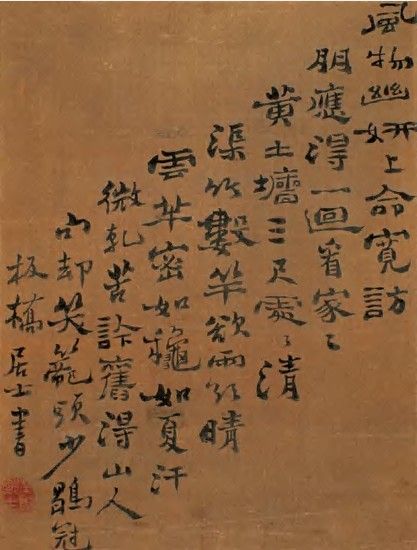 風物幽妍上命寬訪
朋應得一迴看家〻
黃土墻三尺處〻清
渠竹數竿欲雨晴
雲半密如龝如夏汗
微乾苦訡舊得山人
却笑籠頭少鶡冠
板橋居士書